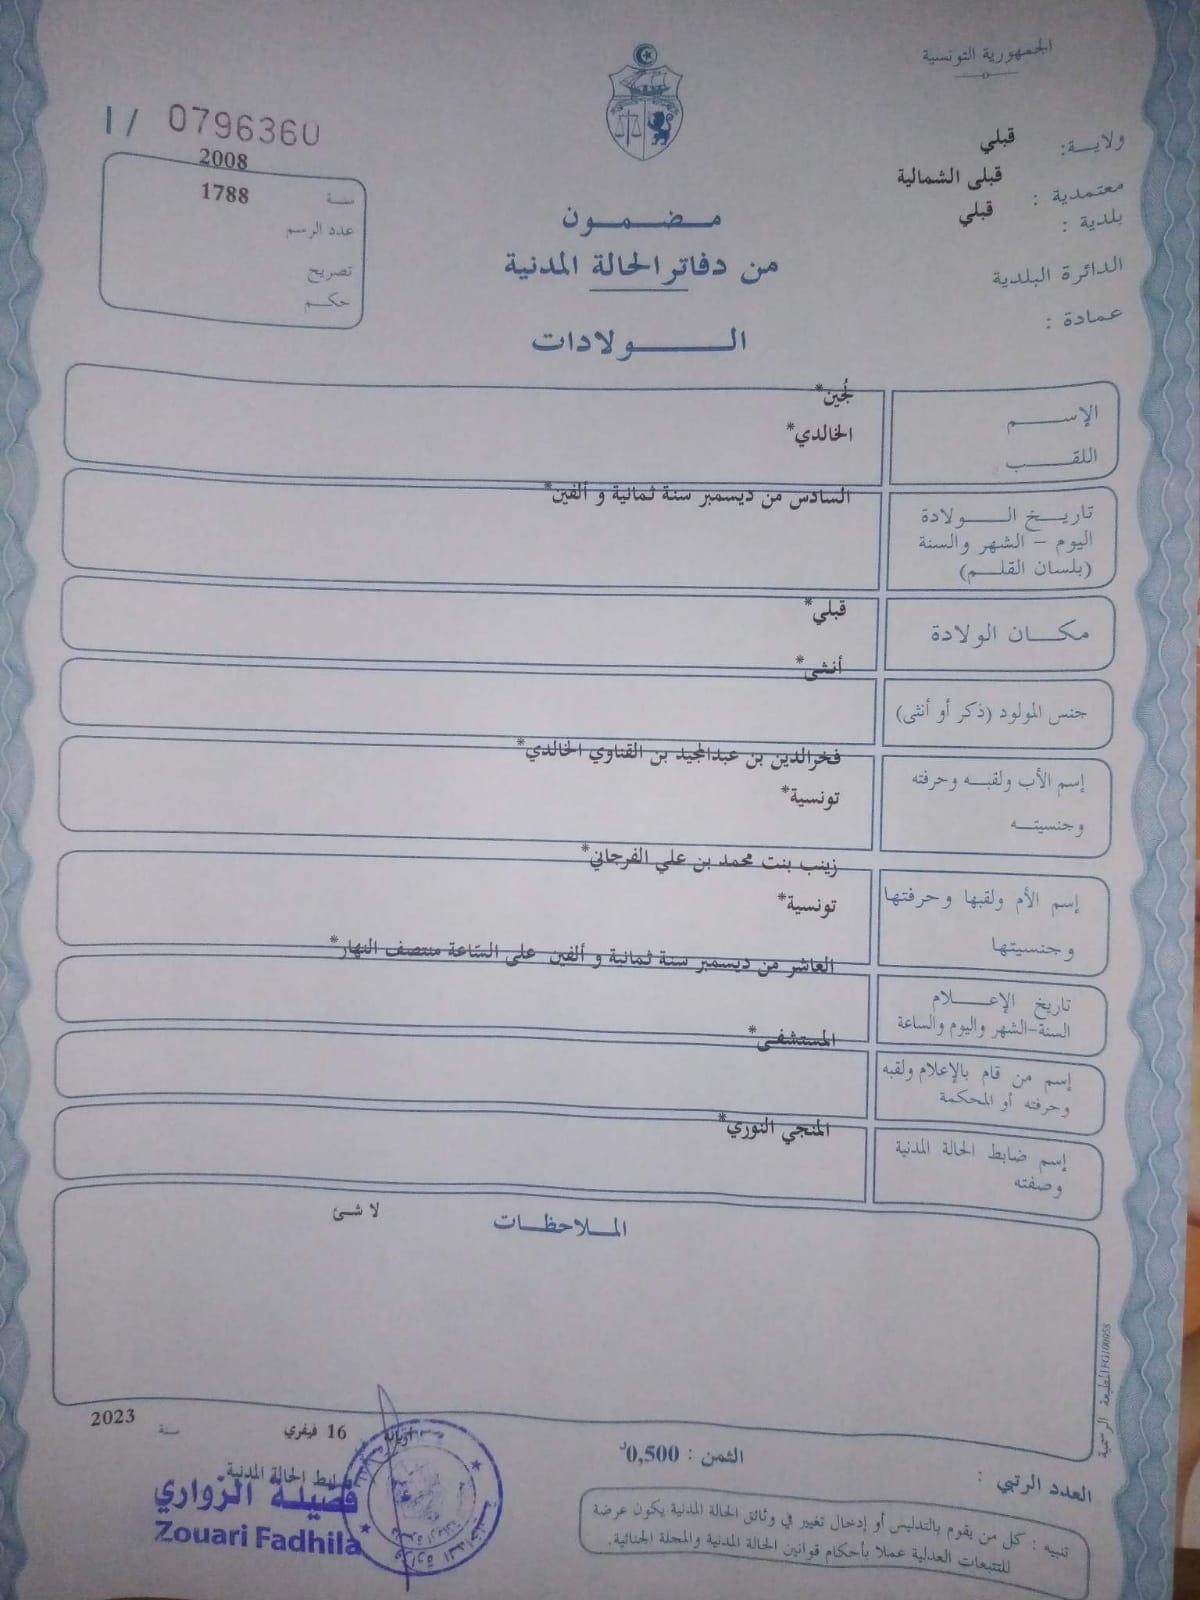 الجمهورية التونسية
ولاية: قبلي
معتمدية : قبلى الشمالية
بلدية : قبلي
الدائرة البلدية
عمادة :
I / 0796360
2008
سنة 1788
عدد الرسم
تصريح
حكم
مضمون
من دفاتر الحالة المدنية
الولادات
الإسم لُجين*
اللقب الخالدي*
تاريخ الولادة السادس من ديسمبر سنة ثمانية و ألفين*
اليوم – الشهر والسنة
(بلسان القلم)
مكان الولادة قبلي*
جنس المولود (ذكر أو أنثى) أنثى*
إسم الأب ولقبه وحرفته فخرالدين بن عبدالمجيد بن القناوي الخالدي*
وجنسيته تونسية*
إسم الأم ولقبها وحرفتها زينب بنت محمد بن علي الفرجاني*
وجنسيتها تونسية*
تاريخ الإعلام العاشر من ديسمبر سنة ثمانية و ألفين على السّاعة منتصف النهار*
السنة-الشهر واليوم والساعة
إسم من قام بالإعلام ولقبه المستشفى*
وحرفته أو المحكمة
إسم ضابط الحالة المدنية المنجي النوري*
وصفته
الملاحظات لا شئ
المطبعة الرسمية FG100058
أريانة 16 فيفري سنة 2023
ضابط الحالة المدنية
فضيلة الزواري
Zouari Fadhila
الثمن : 0,500د
العدد الرتبي :
تنبيه : كل من يقوم بالتدليس أو إدخال تغيير في وثائق الحالة المدنية يكون عرضة
للتتبعات العدلية عملا بأحكام قوانين الحالة المدنية والمجلة الجنائية.